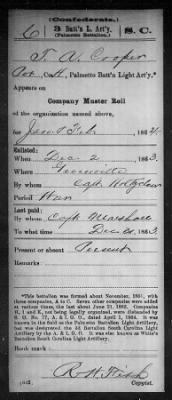 (Confederate.)
6 3 Batt'n L. Art'y. S. C.
(Palmetto Battalion.)
T. A. Cooper
Pvt, Co. H, Palmetto Batt'n Light Art'y.*
Appears on
Company Muster Roll
of the organization named above,
for Jan & Feb, 1864.
Enlisted:
When Dec 2, 1863.
Where Greenville
By whom Capt Holtzclaw
Period War
Last paid:
By whom Capt Marshall
To what time Dec 31, 1863.
Present or absent Present
Remarks:
*This battalion was formed about November, 1861, with
three companies, A to C. Seven other companies were added
at various times, the last about May 21, 1862. Companies
H, I and K, not being legally organized, were disbanded by
S. O. No. 77, A. & I. G. O., dated April 1, 1864. It was
known in the field as the Palmetto Battalion Light Artillery,
but was designated the 3d Battalion South Carolina Light
Artillery by the A. & I. G. O. It was also known as White's
Battalion South Carolina Light Artillery.
Book mark:
(642)
Copyist.